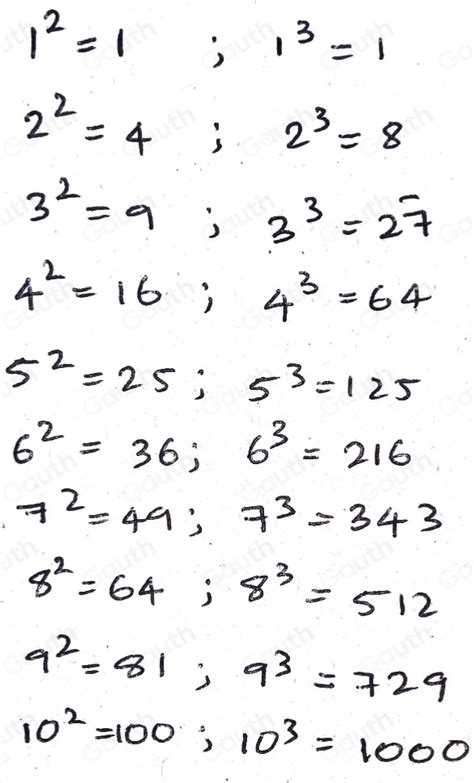 1² = 1 ; 1³ = 1
2² = 4 ; 2³ = 8
3² = 9 ; 3³ = 27
4² = 16 ; 4³ = 64
5² = 25 ; 5³ = 125
6² = 36 ; 6³ = 216
7² = 49 ; 7³ = 343
8² = 64 ; 8³ = 512
9² = 81 ; 9³ = 729
10² = 100 ; 10³ = 1000